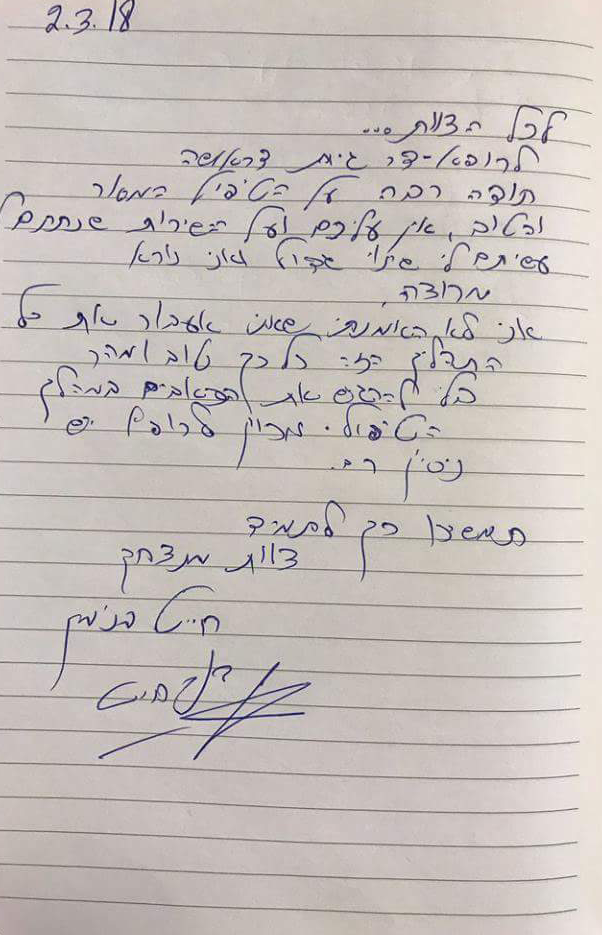 2.3.18
לכל הצוות...
לרופא-דר דראושה
תודה רבה על הטיפול המסור
והטוב, אין עליכם ועל השירות שנתתם
עשיתם לי שינוי גדול ואני נורא
מרוצה.
אני לא האמנתי שאני אעבור את כל
התהליך הזה כל כך טוב ומהר
בלי להרגיש את הכאבים במהלך
הטיפול. מכיוון לרופא יש
ניסיון רב.
תמשיכו כך לתמיד
צוות מנצח
בנימין